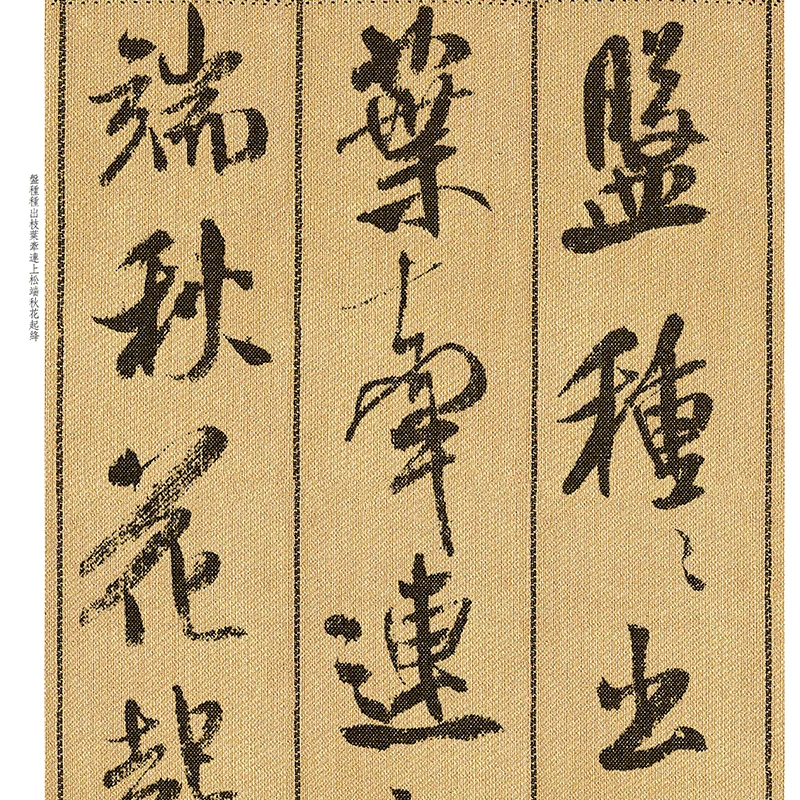 盤種〻出
葉牽連
端秋花起
盤種種出枝葉牽連上松端秋花起絳